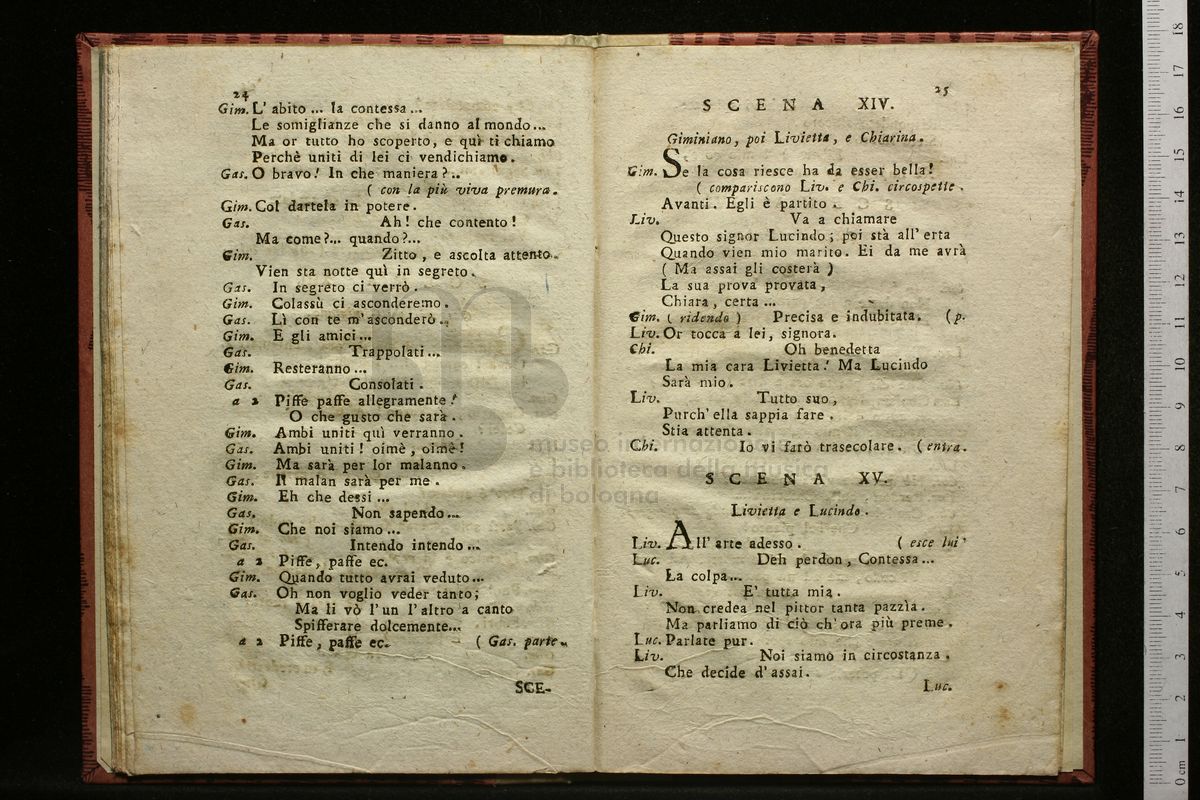 24
Gim. L' abito ... la contessa ...
Le somiglianze che si danno al mondo...
Ma or tutto ho scoperto, e quì ti chiamo
Perchè uniti di lei ci vendichiamo.
Gas. O bravo! In che maniera?..
( con la più viva premura.
Gim. Col dartela in potere.
Gas. Ah! che contento!
Ma come?... quando?...
Gim. Zitto, e ascolta attento.
Vien sta notte quì in segreto.
Gas. In segreto ci verrò.
Gim. Colassù ci asconderemo.
Gas. Lì con te m'asconderò.
Gim. E gli amici...
Gas. Trappolati...
Gim. Resteranno...
Gas. Consolati.
a 2 Piffe paffe allegramente!
O che gusto che sarà.
Gim. Ambi uniti quì verranno.
Gas. Ambi uniti! oimè, oimè!
Gim. Ma sarà per lor malanno.
Gas. Il malan sarà per me.
Gim. Eh che dessi ...
Gas. Non sapendo...
Gim. Che noi siamo...
Gas. Intendo intendo...
a 2 Piffe, paffe ec.
Gim. Quando tutto avrai veduto...
Gas. Oh non voglio veder tanto;
Ma li vò l'un l'altro a canto
Spifferare dolcemente...
a 2 Piffe, paffe ec. ( Gas. parte.
SCE-
25
SCENA XIV.
Giminiano, poi Livietta, e Chiarina.
Gim. Se la cosa riesce ha da esser bella!
( compariscono Liv. e Chi. circospette.
Avanti. Egli è partito.
Liv. Va a chiamare
Questo signor Lucindo; poi stà all' erta
Quando vien mio marito. Ei da me avrà
( Ma assai gli costerà )
La sua prova provata,
Chiara, certa ...
Gim. ( ridendo ) Precisa e indubitata. (p.
Liv. Or tocca a lei, signora.
Chi. Oh benedetta
La mia cara Livietta! Ma Lucindo
Sarà mio.
Liv. Tutto suo,
Purch' ella sappia fare.
Stia attenta.
Chi. Io vi farò trasecolare. (entra.
SCENA XV.
Livietta e Lucindo.
Liv. All' arte adesso. ( esce lui
Luc. Deh perdon, Contessa...
La colpa...
Liv. E' tutta mia.
Non credea nel pittor tanta pazzìa.
Ma parliamo di ciò ch'ora più preme.
Luc. Parlate pur.
Liv. Noi siamo in circostanza.
Che decide d'assai.
Luc.
museo internazionale
e biblioteca della musica
di bologna
0 cm 1 2 3 4 5 6 7 8 9 10 11 12 13 14 15 16 17 18